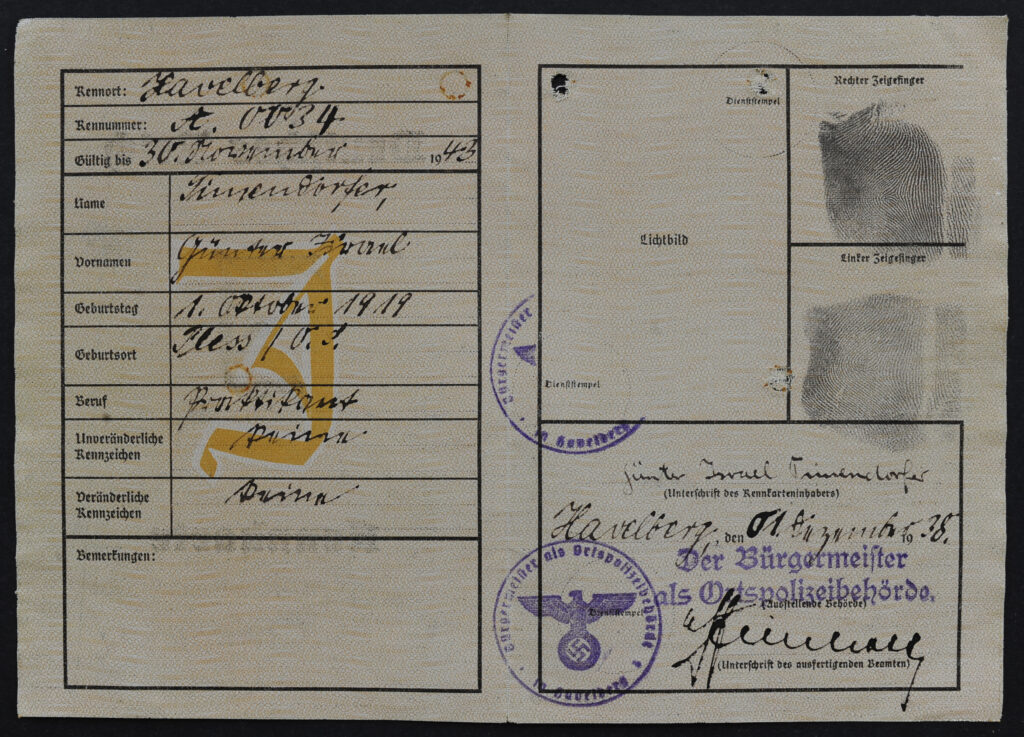 Kennort: Havelberg.
Kennummer: A. 0034
Gültig bis 30. November 1943
Name Timendorfer,
Vornamen Günter Israel
Geburtstag 1. Oktober 1919
Geburtsort Pless / O. S.
Beruf Praktikant
Unveränderliche Kennzeichen keine
Veränderliche Kennzeichen keine
Bemerkungen:
J
Dienststempel
Rechter Zeigefinger
Lichtbild
Linker Zeigefinger
Bürgermeister
in Havelberg
Dienststempel
Günter Israel Timendorfer
(Unterschrift des Kennkarteninhabers)
Havelberg, den 01. Dezember 1938.
Der Bürgermeister
als Ortspolizeibehörde.
(Ausstellende Behörde)
Bürgermeister als Ortspolizeibehörde
in Havelberg
Dienststempel
(Unterschrift des ausfertigenden Beamten)